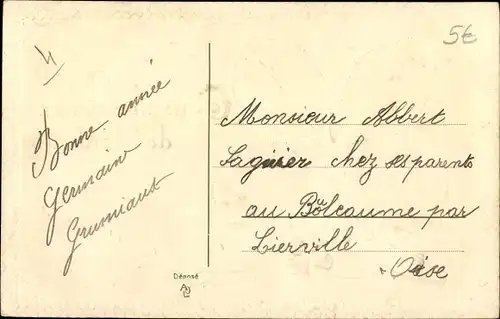 5€
Bonne année
Germaine
Grumiaux
Monsieur Albert
chez ses parents
au par
Lierville
Oise
Déposé